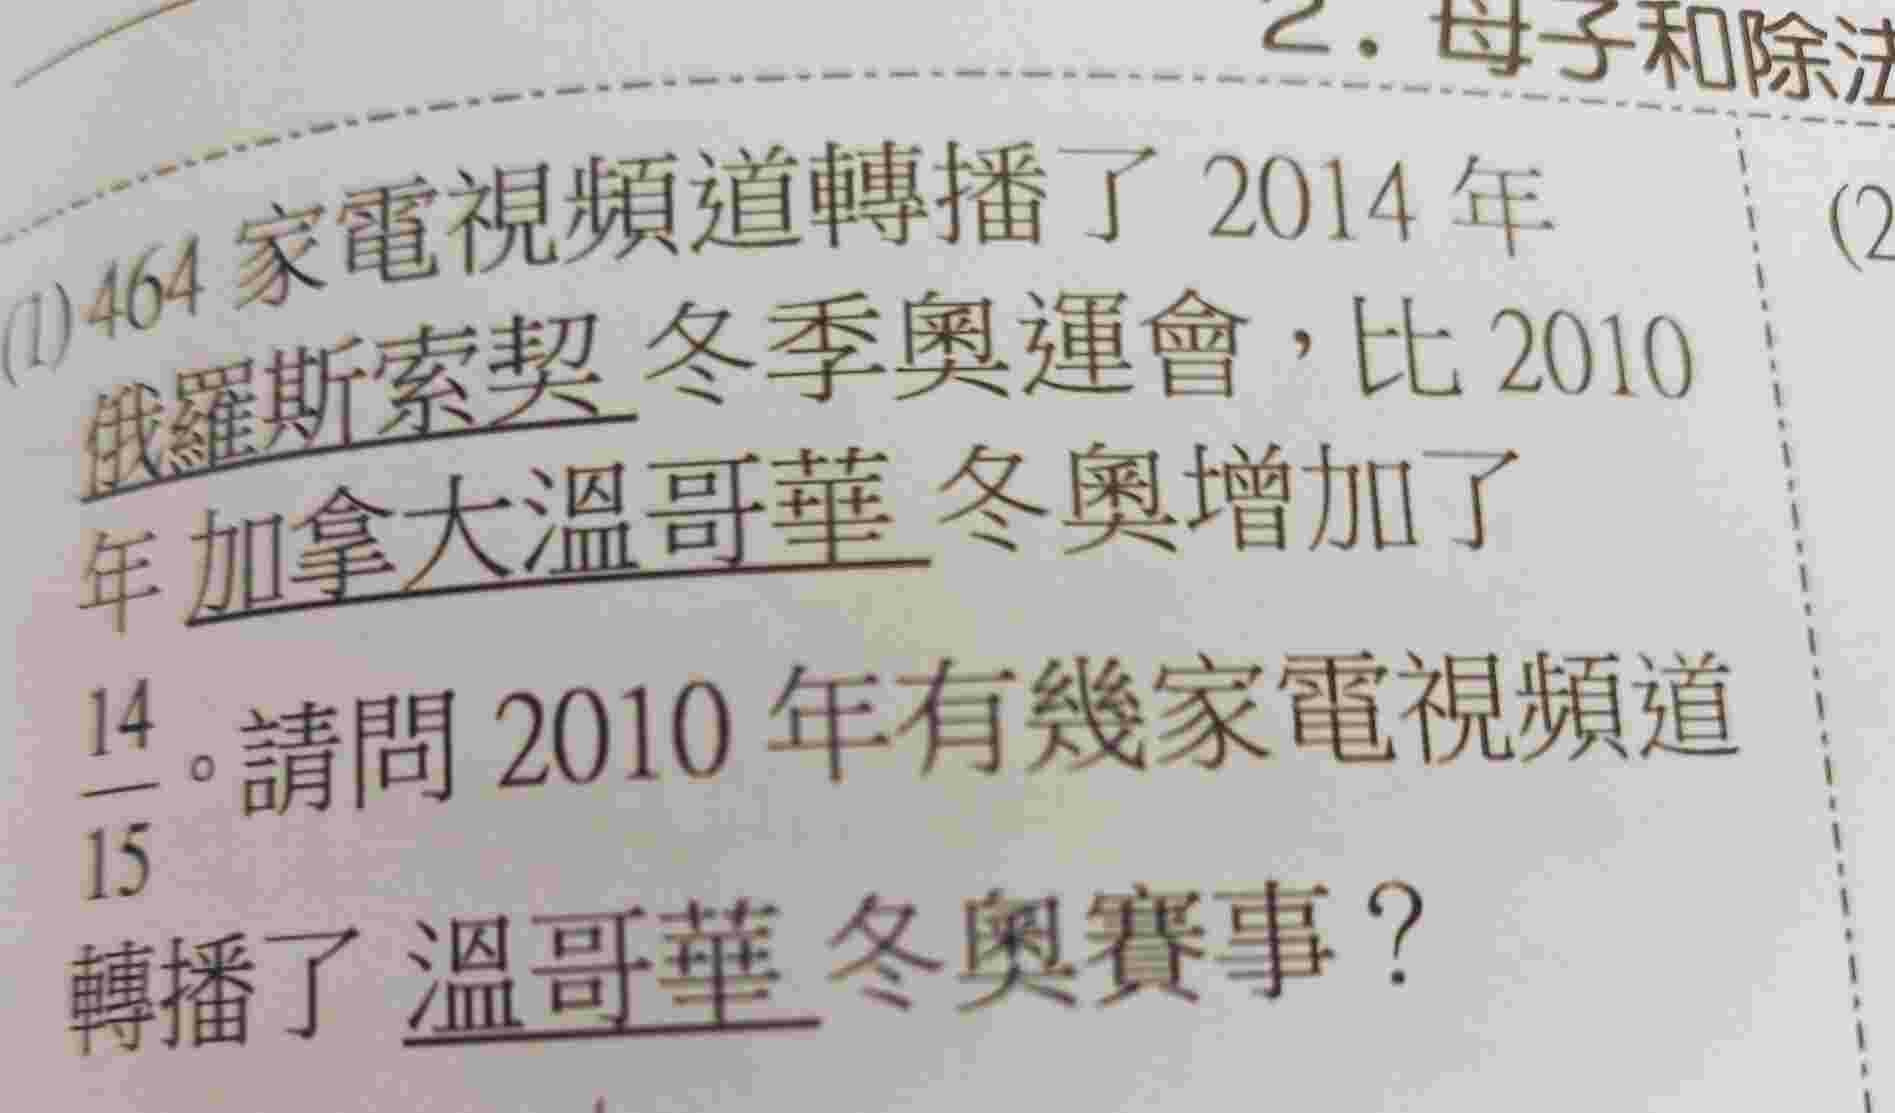 2. 母子和除法
(1) 464 家電視頻道轉播了 2014 年
俄羅斯索契冬季奧運會，比 2010
年加拿大溫哥華冬奧增加了
14/15。請問 2010 年有幾家電視頻道
轉播了溫哥華冬奧賽事？
(2